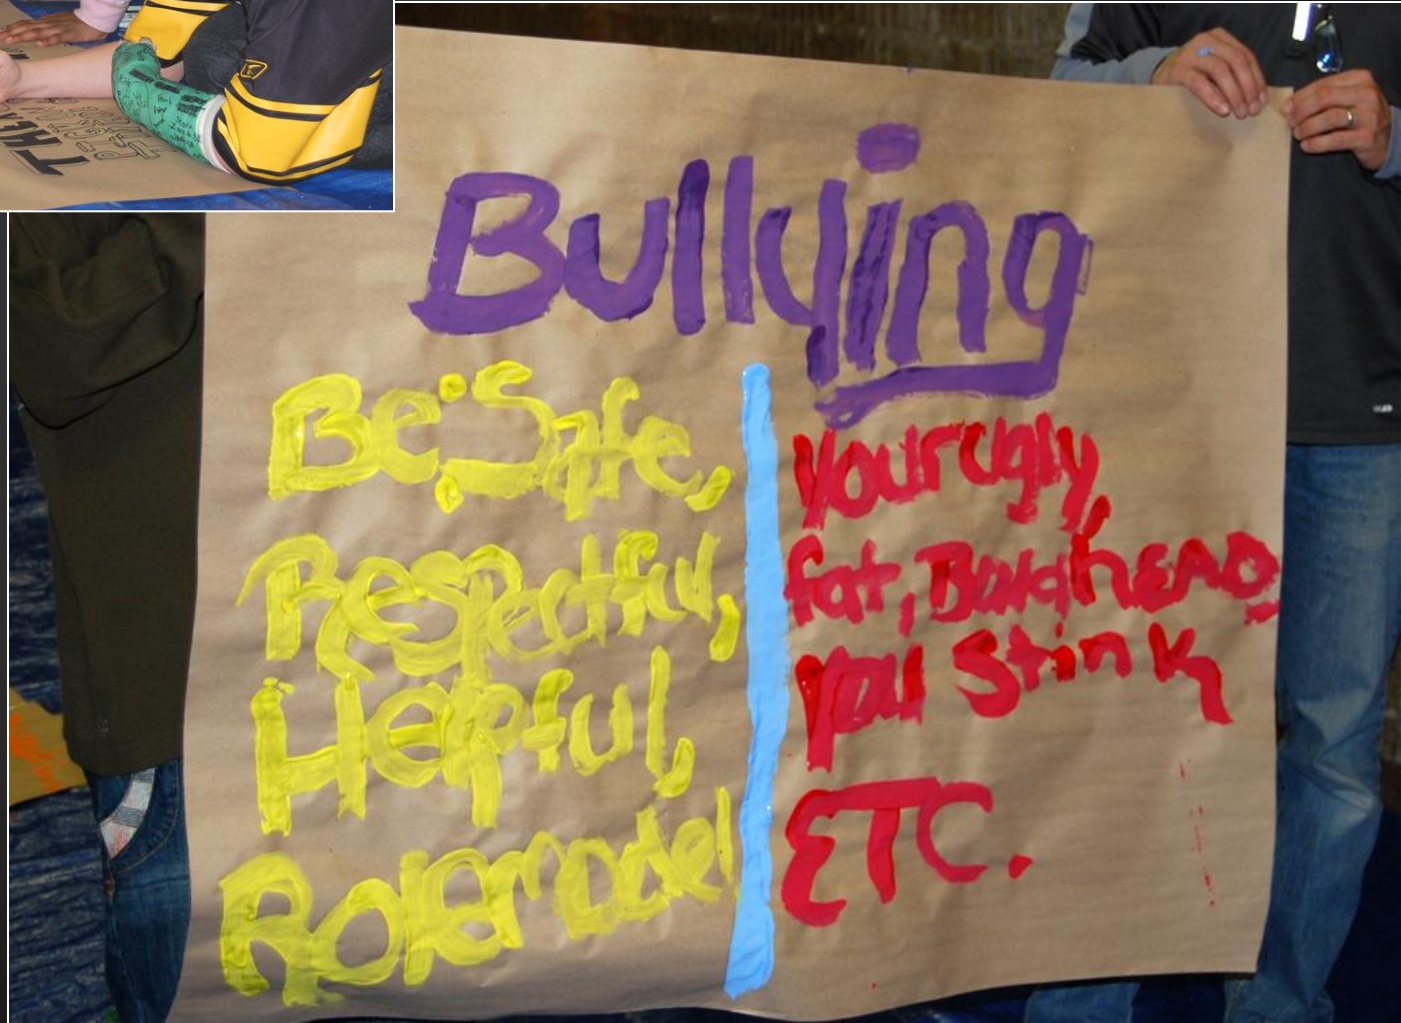 Bullying
Be: Safe,
Respectful,
Helpful,
Rolemodel
Your ugly,
fat, BaldhEAD
you Stink
ETC.